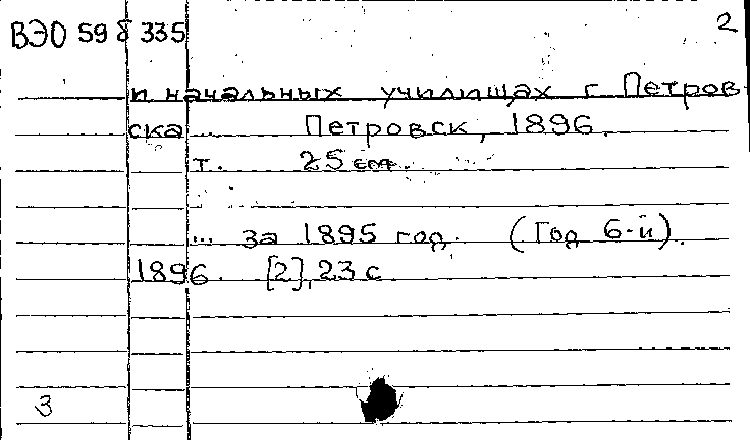 ВЭО 59 8/335 2
и начальных училищах г Петров-
ска ... Петровск, 1896.
т. 25 см.
... за 1895 год. (Год 6-й).
1896. [2], 23 с.
3